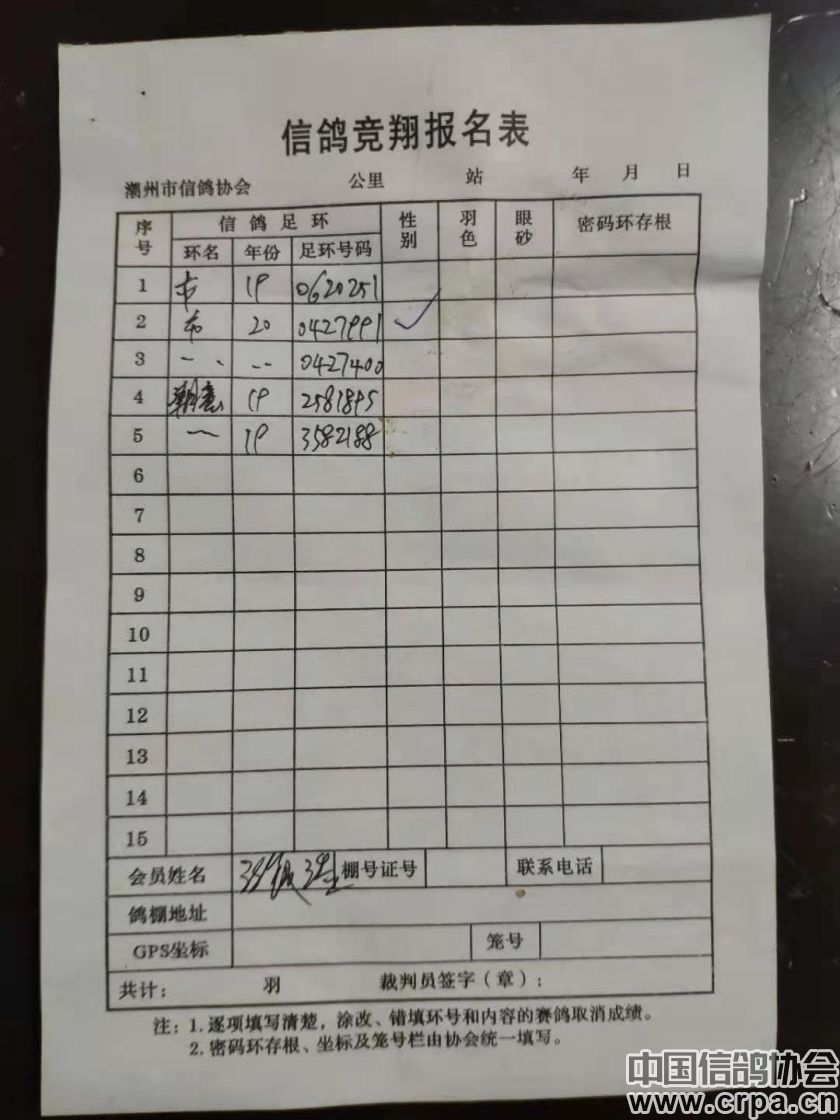 信鸽竞翔报名表
潮州市信鸽协会 公里 站 年 月 日
序号 信鸽足环 性别 羽色 眼砂 密码环存根
环名 年份 足环号码
1 市 19 0620251
2 市 20 0427991 ✓
3 0427400
4 19 2581895
5 19 3582188
6
7
8
9
10
11
12
13
14
15
会员姓名 棚号证号 联系电话
鸽棚地址
GPS坐标 笼号
共计: 羽 裁判员签字(章):
注:1.逐项填写清楚,涂改、错填环号和内容的赛鸽取消成绩。
2.密码环存根、坐标及笼号栏由协会统一填写。
中国信鸽协会
www.crpa.cn